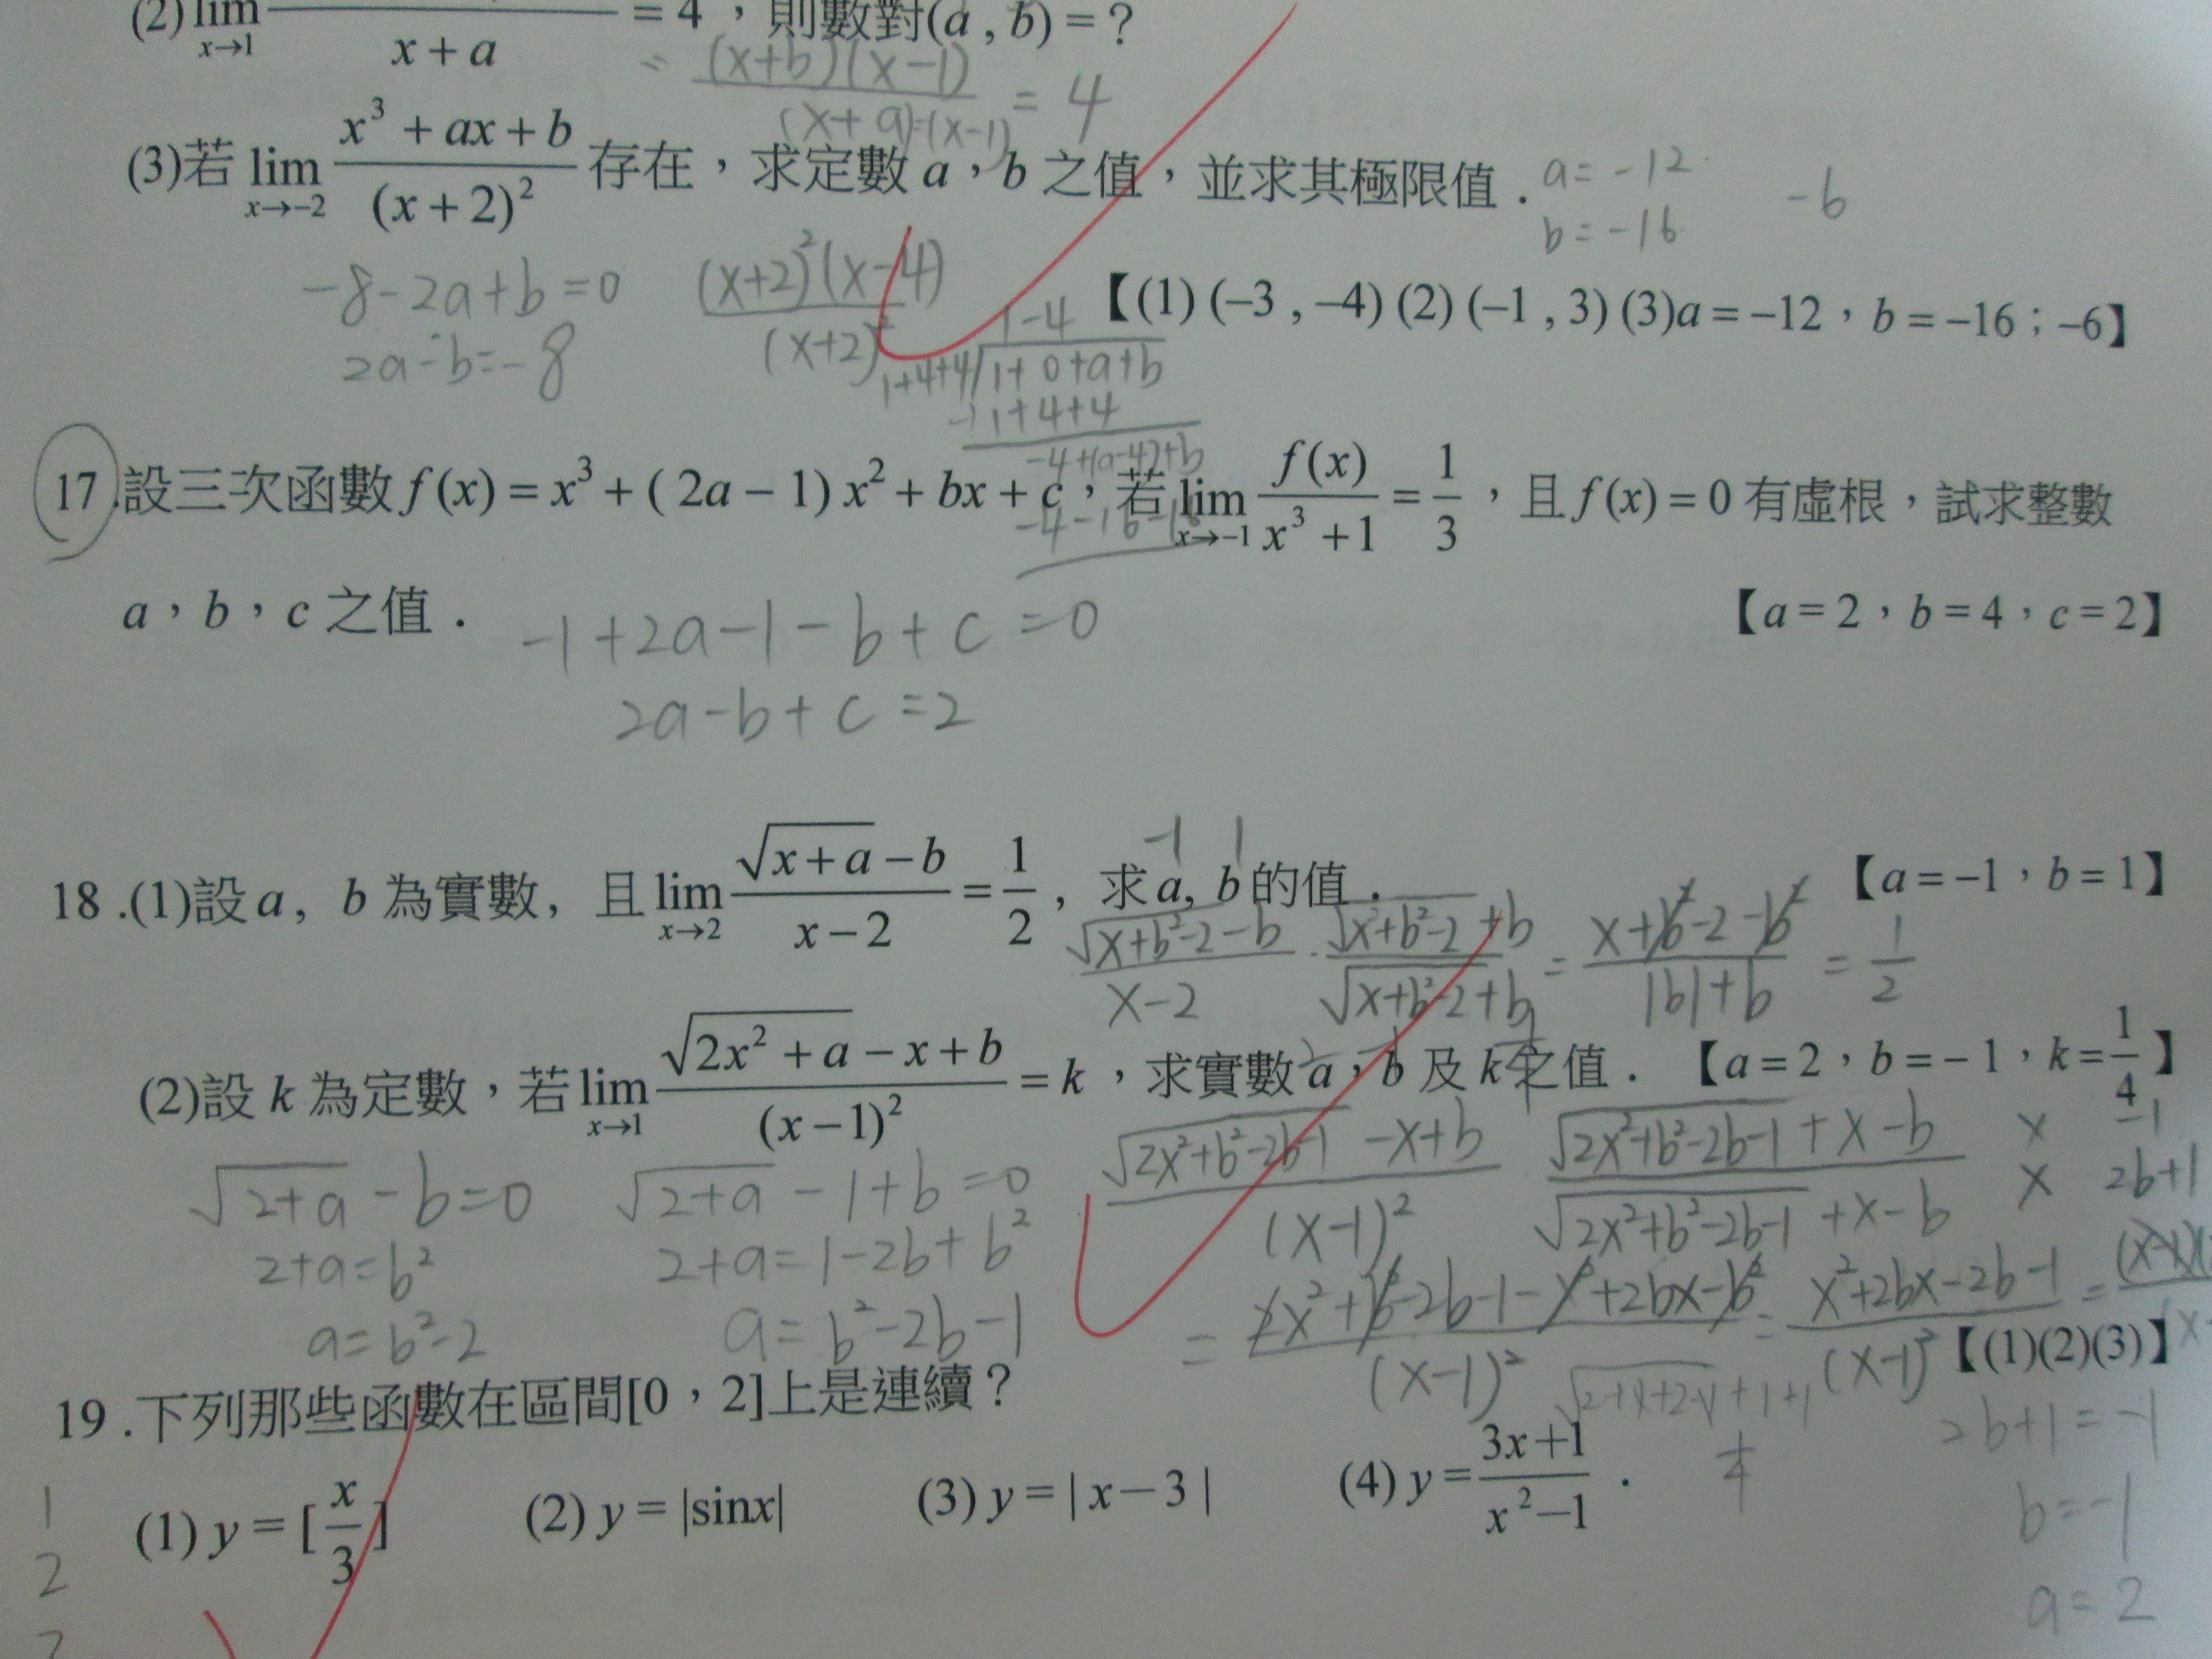 (2) lim x→1 x + a = 4，則數對(a , b) = ?
= (x+b)(x-1) / (x+a)(x-1) = 4
(3)若 lim x→-2 (x³ + ax + b) / (x + 2)² 存在，求定數 a，b 之值，並求其極限值．
a = -12
b = -16
-6
-8-2a+b=0
2a-b=-8
(x+2)²(x-4) / (x+2)²
1-4
1+4+4 1+0+a+b
1+4+4
-4+(a-4)+b
-4-16-16
【(1) (–3 , –4) (2) (–1 , 3) (3)a = –12，b = –16；–6】
17.設三次函數 f (x) = x³ + ( 2a – 1) x² + bx + c，若 lim x→-1 f (x) / (x³ + 1) = 1/3，且 f (x) = 0 有虛根，試求整數
a，b，c 之值．
【a = 2，b = 4，c = 2】
-1+2a-1-b+c=0
2a-b+c=2
-1 1
18 .(1)設 a, b 為實數, 且 lim x→2 (√(x + a) – b) / (x – 2) = 1/2 , 求 a, b 的值．
【a = –1，b = 1】
(√(x+b²-2)-b) / (x-2) · (√(x+b²-2)+b) / (√(x+b²-2)+b) = (x+b²-2-b²) / (|b|+b) = 1/2
(2)設 k 為定數，若 lim x→1 (√(2x² + a) – x + b) / (x – 1)² = k，求實數 a，b 及 k 之值．【a = 2，b = – 1，k = 1/4】
√(2+a) - b = 0
2+a=b²
a=b²-2
√(2+a) - 1 + b = 0
2+a=1-2b+b²
a=b²-2b-1
(√(2x²+b²-2b-1) -x+b) / (x-1)² (√(2x²+b²-2b-1) +x-b) / (√(2x²+b²-2b-1) +x-b)
x -1
x 2b+1
= (2x²+b²-2b-1-x²+2bx-b²) / (x-1)² = (x²+2bx-2b-1) / (x-1)² =
2b+1=-1
b=-1
a=2
【(1)(2)(3)】
19 .下列那些函數在區間[0，2]上是連續？
(1) y = [x/3] (2) y = |sinx| (3) y = | x – 3 | (4) y = (3x+1) / (x²–1)．
1
2